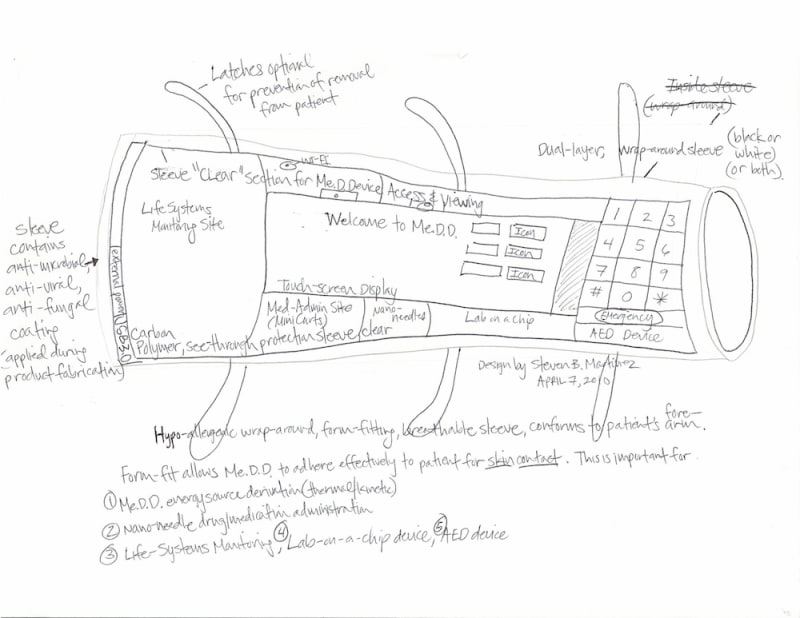 Latches optional
for prevention of removal
from patient
Inside sleeve
(wrap-around)
Dual-layer, wrap-around sleeve
(black or
white)
(or both).
WI-FI
Sleeve "CLear" section for Me.D.Device
Access & Viewing
Life Systems
Monitoring Site
Welcome to Me.D.D.
Icon
Icon
Icon
1 2 3
4 5 6
7 8 9
# 0 *
sleeve
contains
anti-microbial,
anti-viral,
anti-fungal
coating
(applied during
product fabrication)
external power
USB 3.0
Touch-screen Display
Med-Admin Site
(Mini Carts)
Nano-
needles
Lab on a chip
Emergency
AED Device
Carbon
Polymer, see-through protection sleeve/clear
Design by Steven B. Martinez
APRIL 7, 2010
Hypo-allergenic wrap-around, form-fitting, breathable sleeve, conforms to patient's fore-
arm.
Form-fit allows Me.D.D. to adhere effectively to patient for skin contact. This is important for
① Me.D.D. energy source derivation (thermal/kinetic)
② Nano-needle drug/medication administration
③ Life-Systems Monitoring, ④ Lab-on-a-chip device, ⑤ AED device